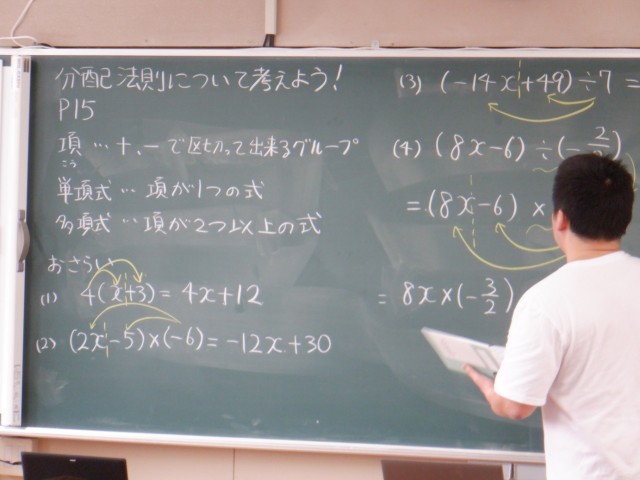 分配法則について考えよう!
P15
項…+、-で区切って出来るグループ
こう
単項式…項が1つの式
多項式…項が2つ以上の式
おさらい
(1) 4(x+3)=4x+12
(2) (2x-5)×(-6)=-12x+30
(3) (-14x+49)÷7=
(4) (8x-6)÷(-2
=(8x-6)×
=8x×(-3/2)